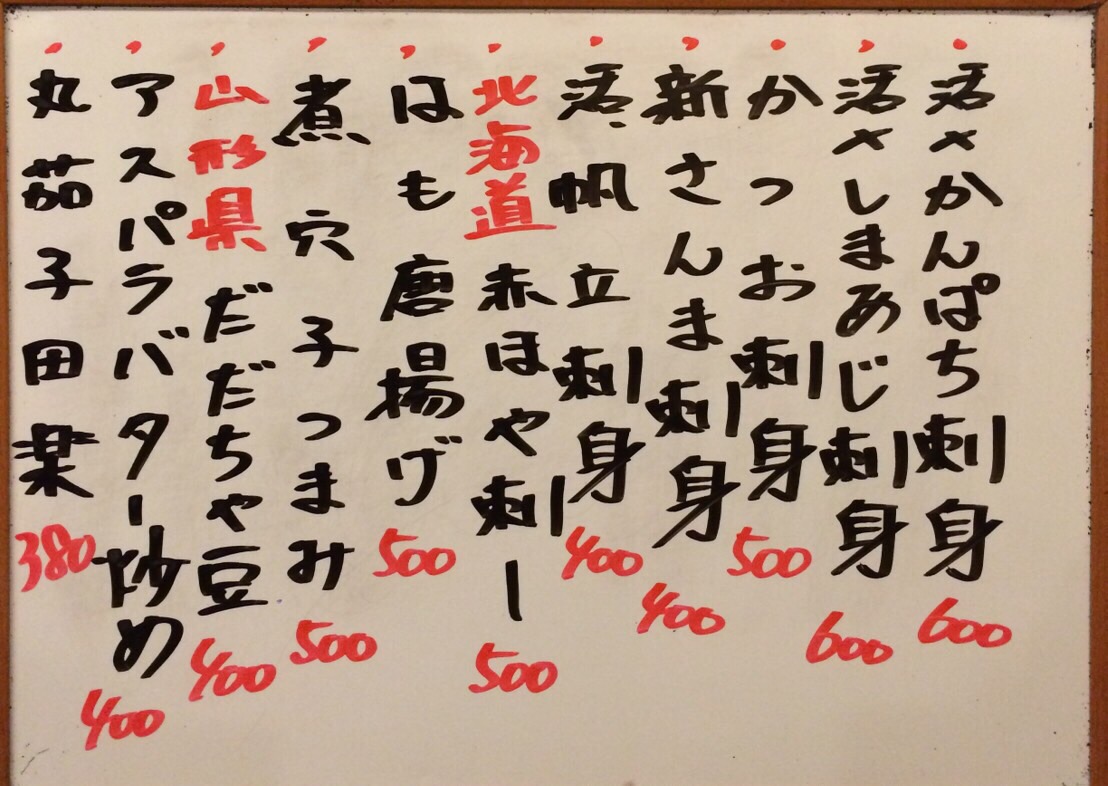 活〆かんぱち刺身 600
活〆しまあじ刺身 600
かつお刺身 500
新さんま刺身 400
活帆立刺身 400
北海道赤ほや刺ー 500
はも唐揚げ 500
煮穴子つまみ 500
山形県だだちゃ豆 400
アスパラバター炒め 400
丸茄子田楽 380